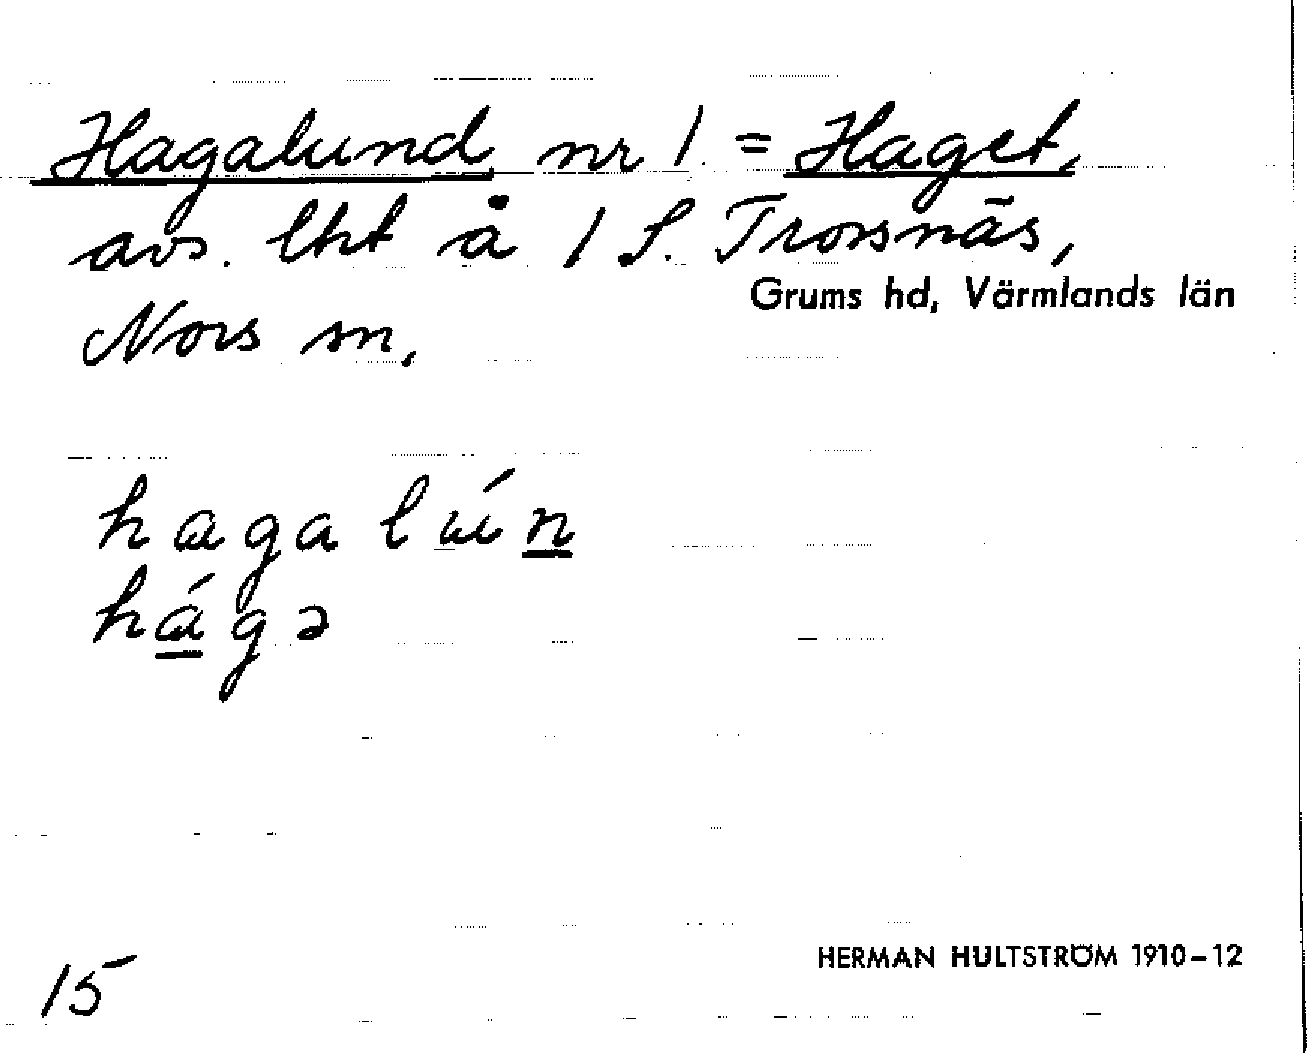 Hagalund nr 1. = Haget,
avs. lht å 1 S. Trossnäs,
Grums hd, Värmlands län
Nors sn.
hagalún
hágə
15
HERMAN HULTSTRÖM 1910–12